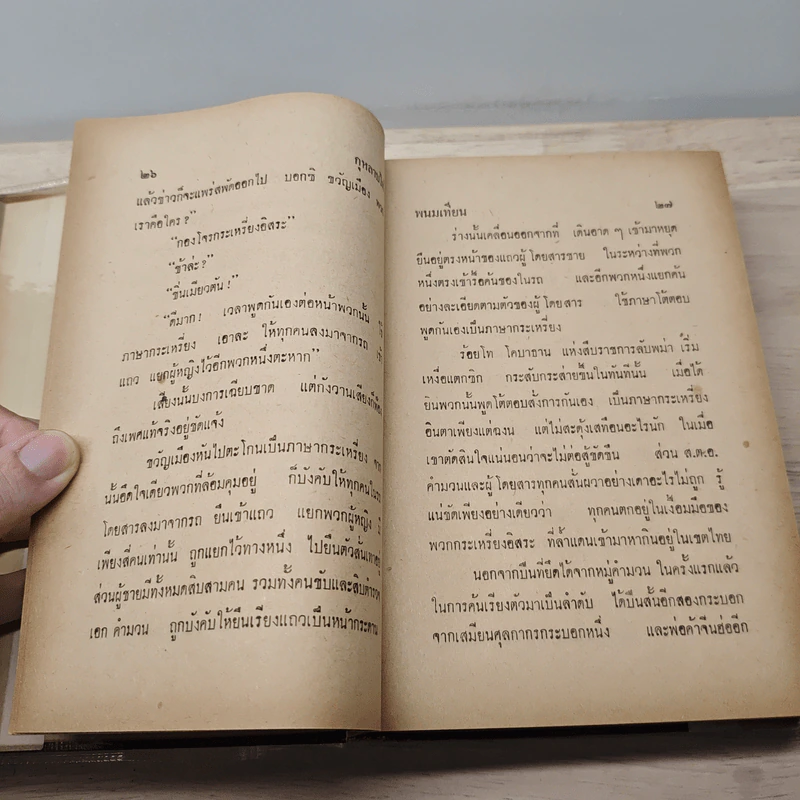 ๒๖
แล้วข่าวก็จะแพร่สพัดออกไป บอกซิ ขวัญเมือง
เราคือใคร?”
“กองโจรกระเหรี่ยงอิสระ”
“ข้าล่ะ?”
“ซิ่นเมียวตัน!”
“ดีมาก! เวลาพูดกันเองต่อหน้าพวกนั้น ใช้
ภาษากระเหรี่ยง เอาละ ให้ทุกคนลงมาจากรถ เข้า
แถว แยกผู้หญิงไว้อีกพวกหนึ่งตะหาก”
เสียงนั้นบงการเฉียบขาด แต่กังวานเสียงก็
ถึงเพศแท้จริงอยู่ชัดแจ้ง
ขวัญเมืองหันไปตะโกนเป็นภาษากระเหรี่ยง จาก
นั้นอึดใจเดียวพวกที่ล้อมคุมอยู่ ก็บังคับให้ทุกคนในรถ
โดยสารลงมาจากรถ ยืนเข้าแถว แยกพวกผู้หญิง มี
เพียงสี่คนเท่านั้น ถูกแยกไว้ทางหนึ่ง ไปยืนตัวสั่นเทาอยู่
ส่วนผู้ชายมีทั้งหมดสิบสามคน รวมทั้งคนขับและสิบตำรวจ
เอก คำมวน ถูกบังคับให้ยืนเรียงแถวเป็นหน้ากระดาน
พนมเทียน ๒๗
ร่างนั้นเคลื่อนออกจากที่ เดินอาด ๆ เข้ามาหยุด
ยืนอยู่ตรงหน้าของแถวผู้โดยสารชาย ในระหว่างที่พวก
หนึ่งตรงเข้ารื้อค้นของในรถ และอีกพวกหนึ่งแยกค้น
อย่างละเอียดตามตัวของผู้โดยสาร ใช้ภาษาโต้ตอบ
พูดกันเองเป็นภาษากระเหรี่ยง
ร้อยโท โคบาธาน แห่งสืบราชการลับพม่า เริ่ม
เหงื่อแตกซิก กระสับกระส่ายขึ้นในทันทีนั้น เมื่อได้
ยินพวกนั้นพูดโต้ตอบสั่งการกันเอง เป็นภาษากระเหรี่ยง
อินตาเพียงแต่ฉงน แต่ไม่สะดุ้งเสทือนอะไรนัก ในเมื่อ
เขาตัดสินใจแน่นอนว่าจะไม่ต่อสู้ขัดขืน ส่วน ส.ต.อ.
คำมวนและผู้โดยสารทุกคนสั่นผวาอย่างเดาอะไรไม่ถูก รู้
แน่ชัดเพียงอย่างเดียวว่า ทุกคนตกอยู่ในเงื้อมมือของ
พวกกระเหรี่ยงอิสระ ที่ล้ำแดนเข้ามาหากินอยู่ในเขตไทย
นอกจากปืนที่ยึดได้จากหมู่คำมวน ในครั้งแรกแล้ว
ในการค้นเรียงตัวมาเป็นลำดับ ได้ปืนสั้นอีกสองกระบอก
จากเสมียนศุลกากรกระบอกหนึ่ง และพ่อค้าจีนฮ่ออีก